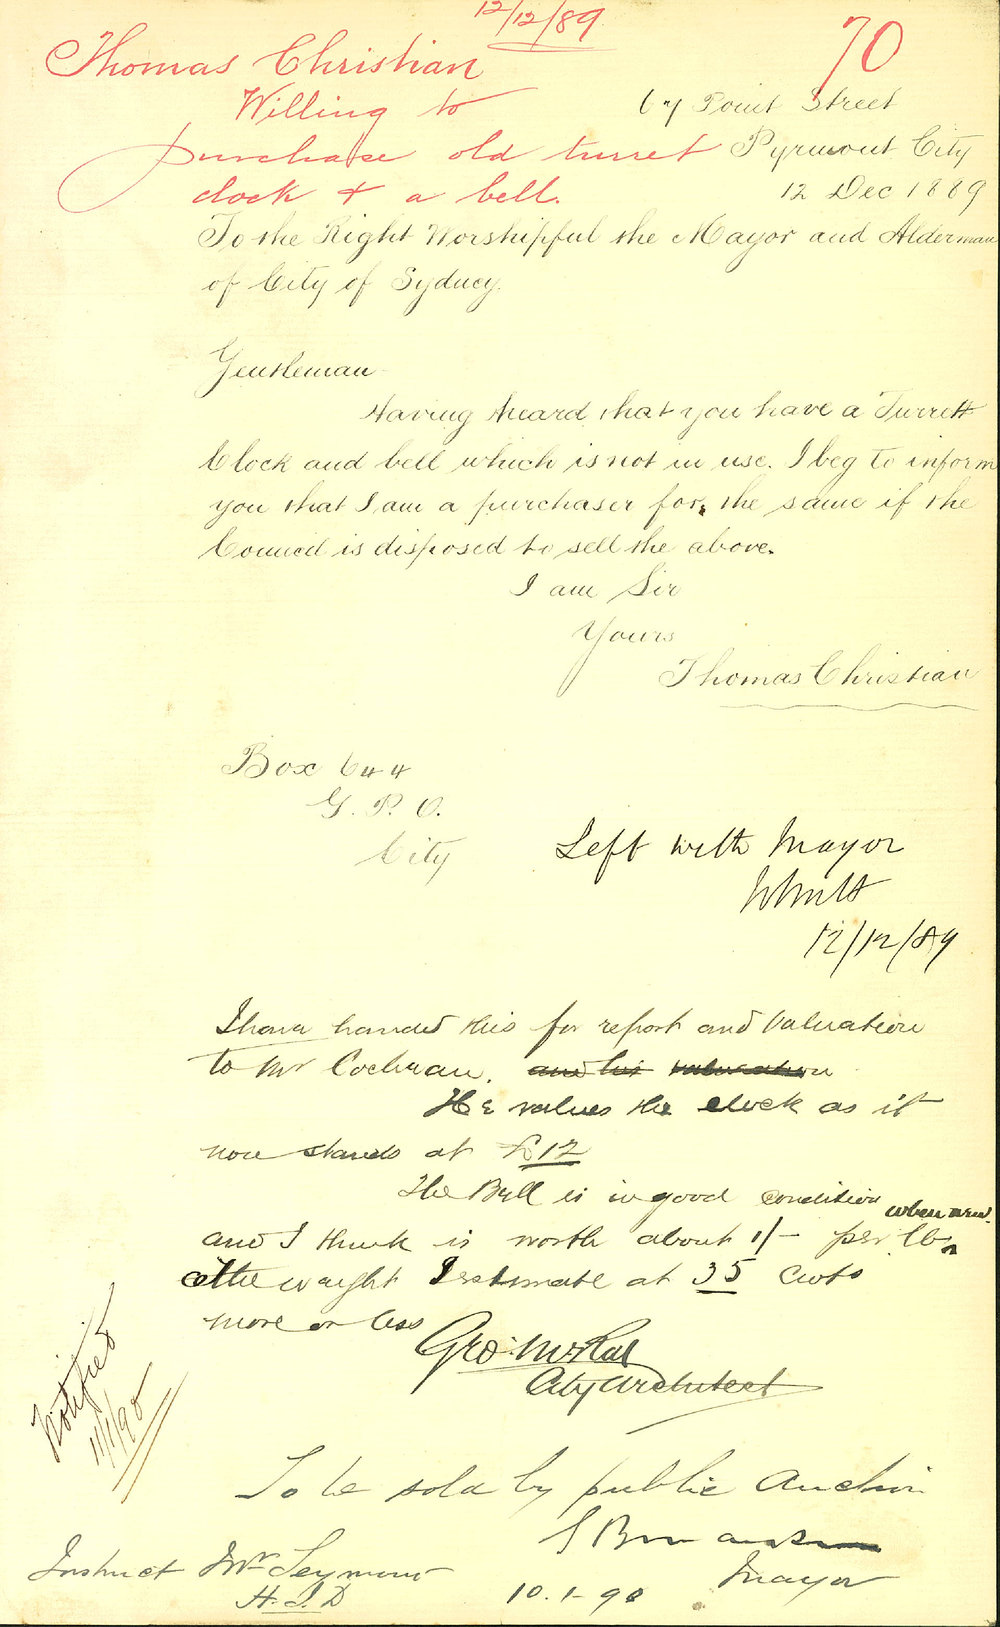 12/12/89
70
Thomas Christian
Willing to
purchase old turret
clock & a bell.
67 Point Street
Pyrmont City
12 Dec 1889
To the Right Worshipful the Mayor and Alderman
of City of Sydney.
Gentleman
Having heard that you have a Turrett
Clock and bell which is not in use. I beg to inform
you that I am a purchaser for the same if the
Council is disposed to sell the above.
I am Sir
Yours
Thomas Christian
Box 644
G. P. O.
City
Left with Mayor
12/12/89
I have handed this for report and valuation
to Mr Cochran. and his valuation
He values the clock as it
now stands at £12
The Bell is in good condition
and I think is worth about 1/- per lb when new.
The weight I estimate at 35 cwts
more or less
Geo. McRae
City Architect
Notified
11/1/90
To be sold by public Auction
Mayor
10.1.90
Instruct Mr Seymour